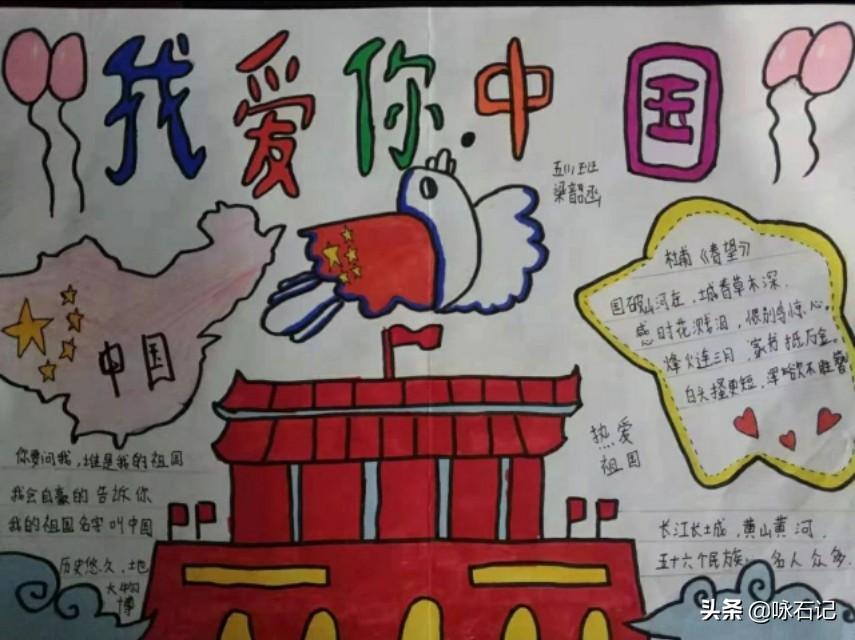 我爱你.中国
五川班
梁韶函
中国
杜甫《春望》
国破山河在,城春草木深.
感时花溅泪,恨别鸟惊心。
烽火连三月,家书抵万金。
白头搔更短,浑欲不胜簪
热爱
祖国
你要问我,谁是我的祖国
我会自豪的告诉你
我的祖国名字叫中国
历史悠久、地
大物
博
长江长城,黄山黄河.
五十六个民族、名人众多.
头条 @咏石记